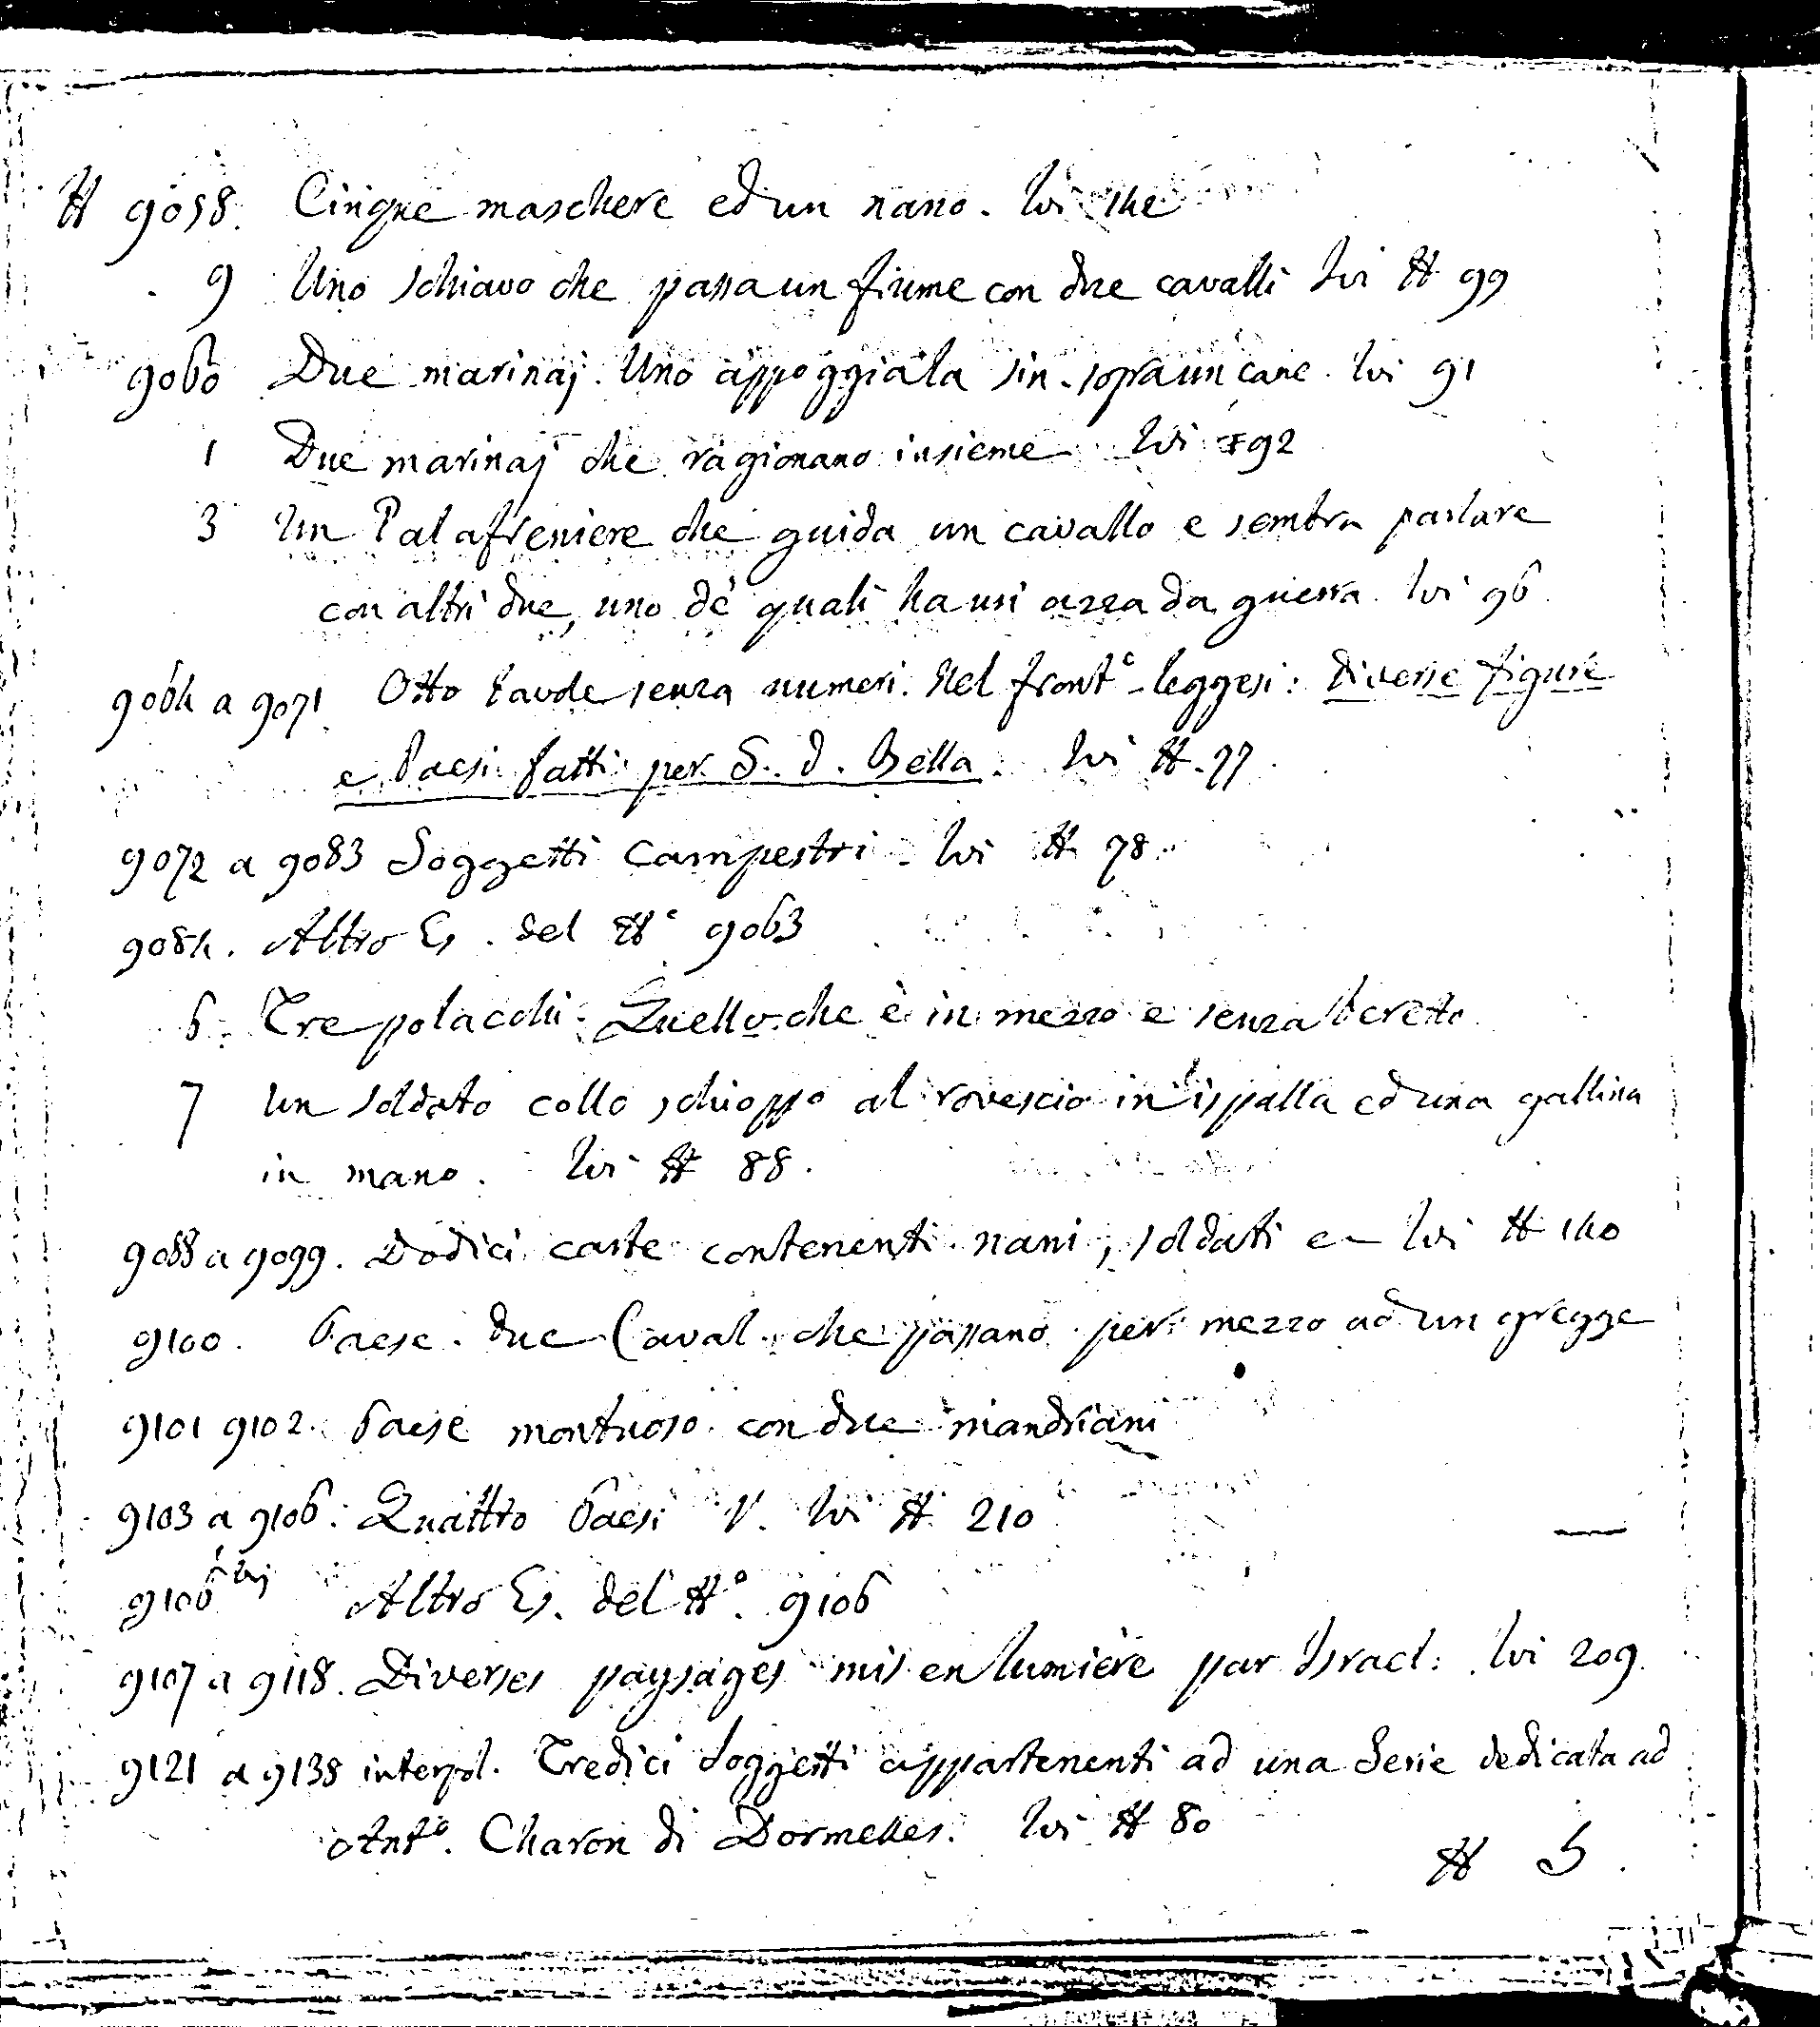 N 9058. Cinque maschere ed un nano. Ivi 142
9 Uno schiavo che passa un fiume con due cavalli Ivi N 99
9060 Due marinaj. Uno appoggia la sin. sopra un cane. Ivi 91
1 Due marinaj che ragionano insieme Ivi 92
3 Un Palafreniere che guida un cavallo e sembra parlare
con altri due, uno de' quali ha un' azza da guerra. Ivi 96.
9064 a 9071 Otto tavole senza numeri. Nel front.e leggesi: Diverse figure
e Paesi fatti per S. D. Bella. Ivi N. 77.
9072 a 9083 Soggetti Campestri. Ivi N 78.
9084. Altro Es. del N.o 9063
6. Tre polacchi. Quello che è in mezzo e senza beretto.
7 Un soldato collo schioppo al rovescio in ispalla ed una gallina
in mano. Ivi N 88.
9088 a 9099. Dodici carte contenenti nani, soldati e Ivi N 140
9100. Paese. due Caval. che passano per mezzo ad un gregge
9101 9102. Paese montuoso con due mandriani
9103 a 9106. Quattro Paesi V. Ivi N. 210
9106 bis Altro Es. del N.o 9106
9107 a 9118. Diverses paysages mis en lumière par Israel. Ivi 209.
9121 a 9138 interpol. Tredici Soggetti appartenenti ad una Serie dedicata ad
Ant.o Charon di Dormelles. Ivi N 80
N 5.